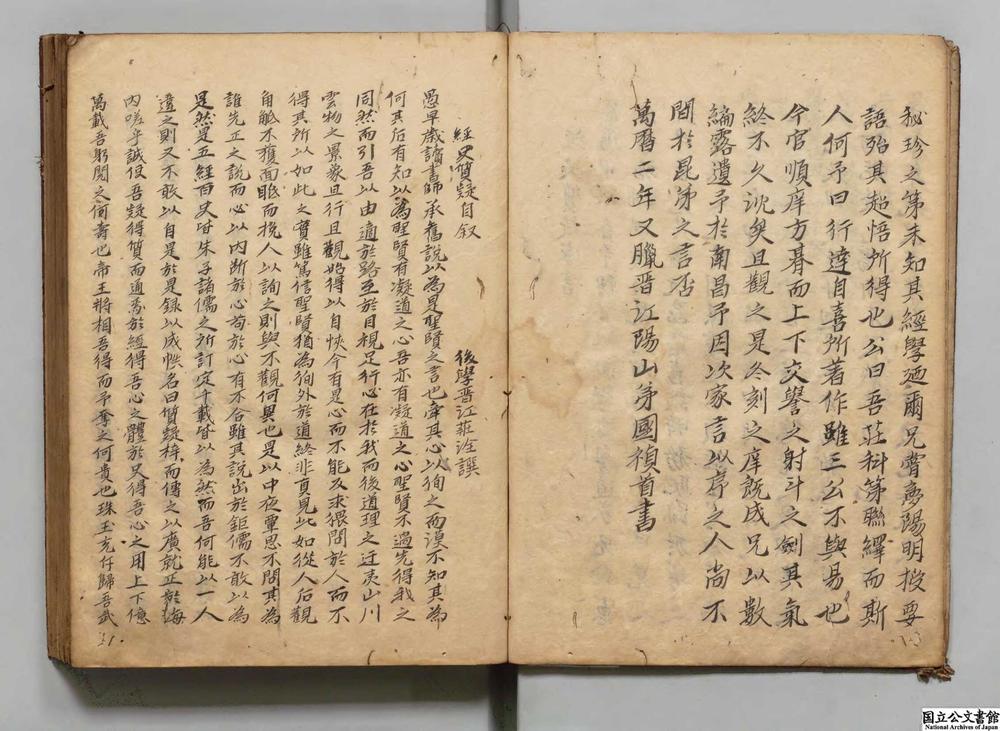 秘珍之第未知其經學廼爾兄嘗夢陽明授要
語殆其超悟所得也公曰吾莊科第聯繹而斯
人何予曰行達自喜所著作雖三公不與易也
今官順庠方暮而上下交譽之射斗之劍其氣
終不久沈矣且觀之是冬刻之庠既成兄以數
編露遺予於南昌予因次家言以序之人尚不
間於昆弟之言否
萬曆二年又臘晋江陽山弟國禎首書
經史質疑自叙
後學晋江莊 譔
愚早歲讀書師承舊說以為是聖賢之言也牽其心以徇之而漠不知其為
何其后有知以為聖賢有凝道之心吾亦有凝道之心聖賢不過先得我之
同然而引吾以由適於路至於目視足行心在於我而後道理之迂夷山川
雲物之景象且行且觀始得以自快今有是心而不能反求猥問於人而不
得其所以如此之實雖篤信聖賢猶為徇外於道終非真見此如從人后觀
自觝不獲面眡而挽人以詢之則與不觀何異也是以中夜覃思不問其為
誰先正之說而心以内断於心苟於心有不合雖其說出於鉅儒不敢以為
是然是五經百史皆朱子諸儒之所訂定千載皆以為然而吾何能以一人
違之則又不敢以自是於是録以成帙名曰質疑梓而傳之以廣就正於海
内嗟乎誠但吾疑得質而通焉於經得吾心之體於史得吾心之用上下億
萬載吾躬閱之何壽也帝王將相吾得而予奪之何貴也珠玉充仞歸吾武
国立公文書館
National Archives of Japan